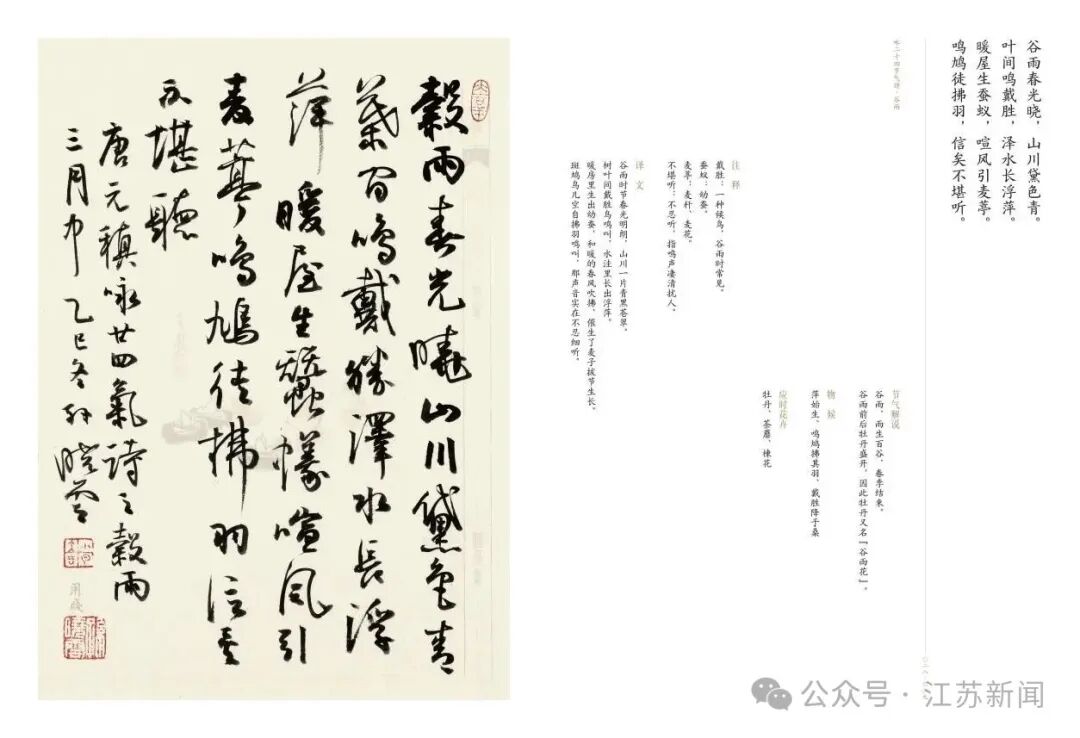 谷雨春光晓，山川黛色青。
叶间鸣戴胜，泽水长浮萍。
暖屋生蚕蚁，喧风引麦葶。
鸣鸠徒拂羽，信矣不堪听。
咏二十四节气诗·谷雨
节气解说
谷雨，雨生百谷，春季结束。
谷雨前后牡丹盛开，因此牡丹又名「谷雨花」。
物候
萍始生、鸣鸠拂其羽、戴胜降于桑
应时花卉
牡丹、荼蘼、楝花
注释
戴胜：一种候鸟，谷雨时常见。
蚕蚁：幼蚕。
麦葶：麦杆、麦花。
不堪听：不忍听，指鸣声凄清扰人。
译文
谷雨时节春光明朗，山川一片青黑苍翠。
树叶间戴胜鸟鸣叫，水洼里长出浮萍。
暖房里生出幼蚕，和暖的春风吹拂，催生了麦子拔节生长。
斑鸠鸟儿空自拂羽鸣叫，那声音实在不忍细听。
穀雨春光曉山川黛色青
葉間鳴戴勝澤水長浮
萍暖屋生蠶蟻喧風引
麦葶鳴鳩徒拂羽信矣
不堪聽
唐元稹咏廿四氣詩之穀雨
三月中 乙巳冬 孙晓雲
公众号·江苏新闻